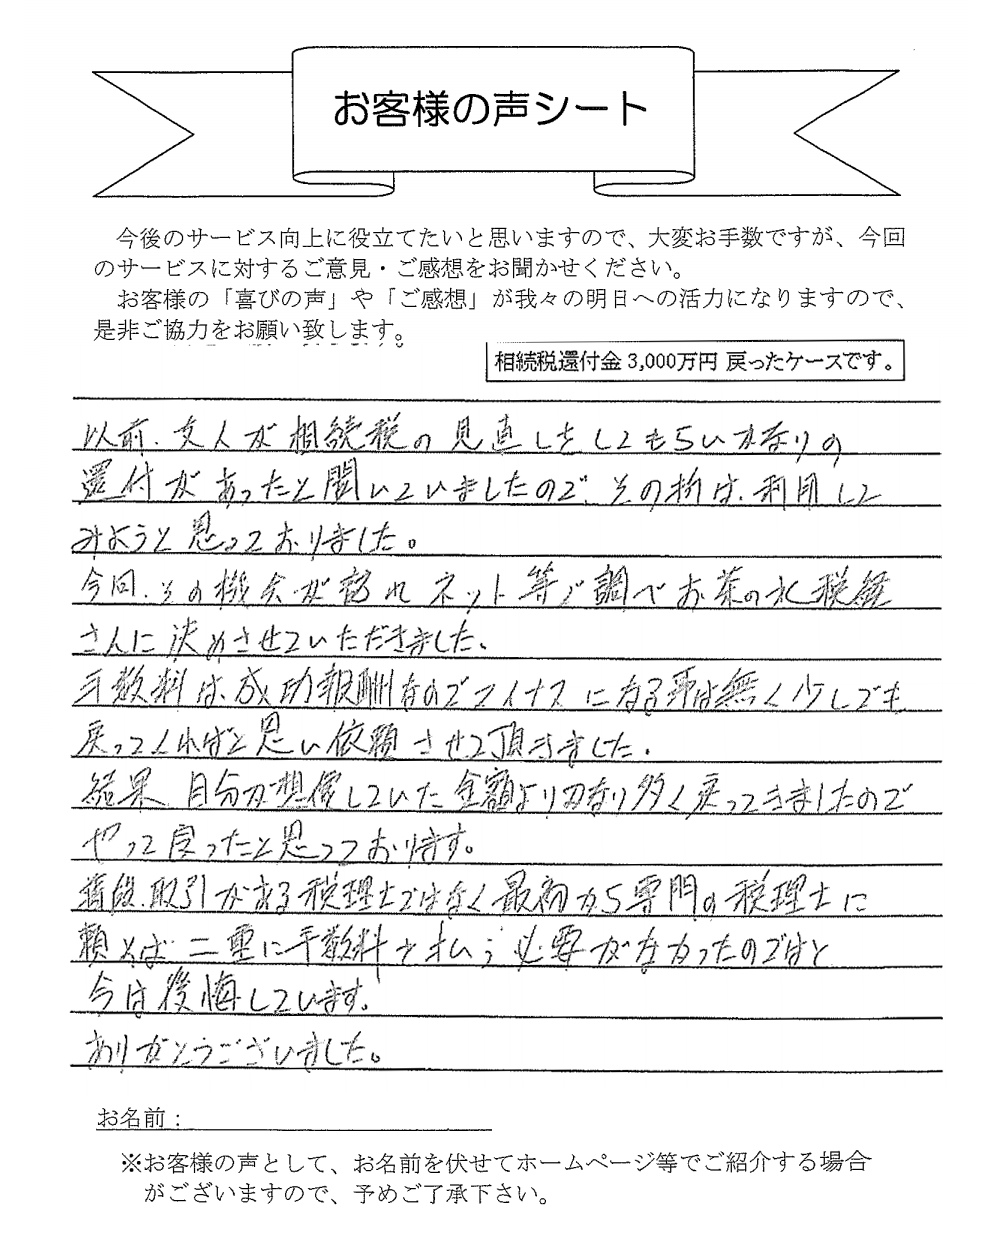 お客様の声シート
今後のサービス向上に役立てたいと思いますので、大変お手数ですが、今回
のサービスに対するご意見・ご感想をお聞かせください。
お客様の「喜びの声」や「ご感想」が我々の明日への活力になりますので、
是非ご協力をお願い致します。
相続税還付金3,000万円 戻ったケースです。
以前、友人が相続税の見直しをしてもらいかなりの
還付があったと聞いていましたので、その折は、利用して
みようと思っておりました。
今回、その機会が訪れネット等で調べお茶の水税経
さんに決めさせていただきました、
手数料は、成功報酬なのでマイナスになる事は無く少しでも
戻ってくればと思い依頼させて頂きました、
結果、自分が想像していた金額よりかなり多く戻ってきましたので
やって良かったと思っております。
普段、取引がある税理士ではなく最初から専門の税理士に
頼めば二重に手数料を払う必要がなかったのではと
今は後悔しています。
ありがとうございました。
お名前：
※お客様の声として、お名前を伏せてホームページ等でご紹介する場合
がございますので、予めご了承下さい。